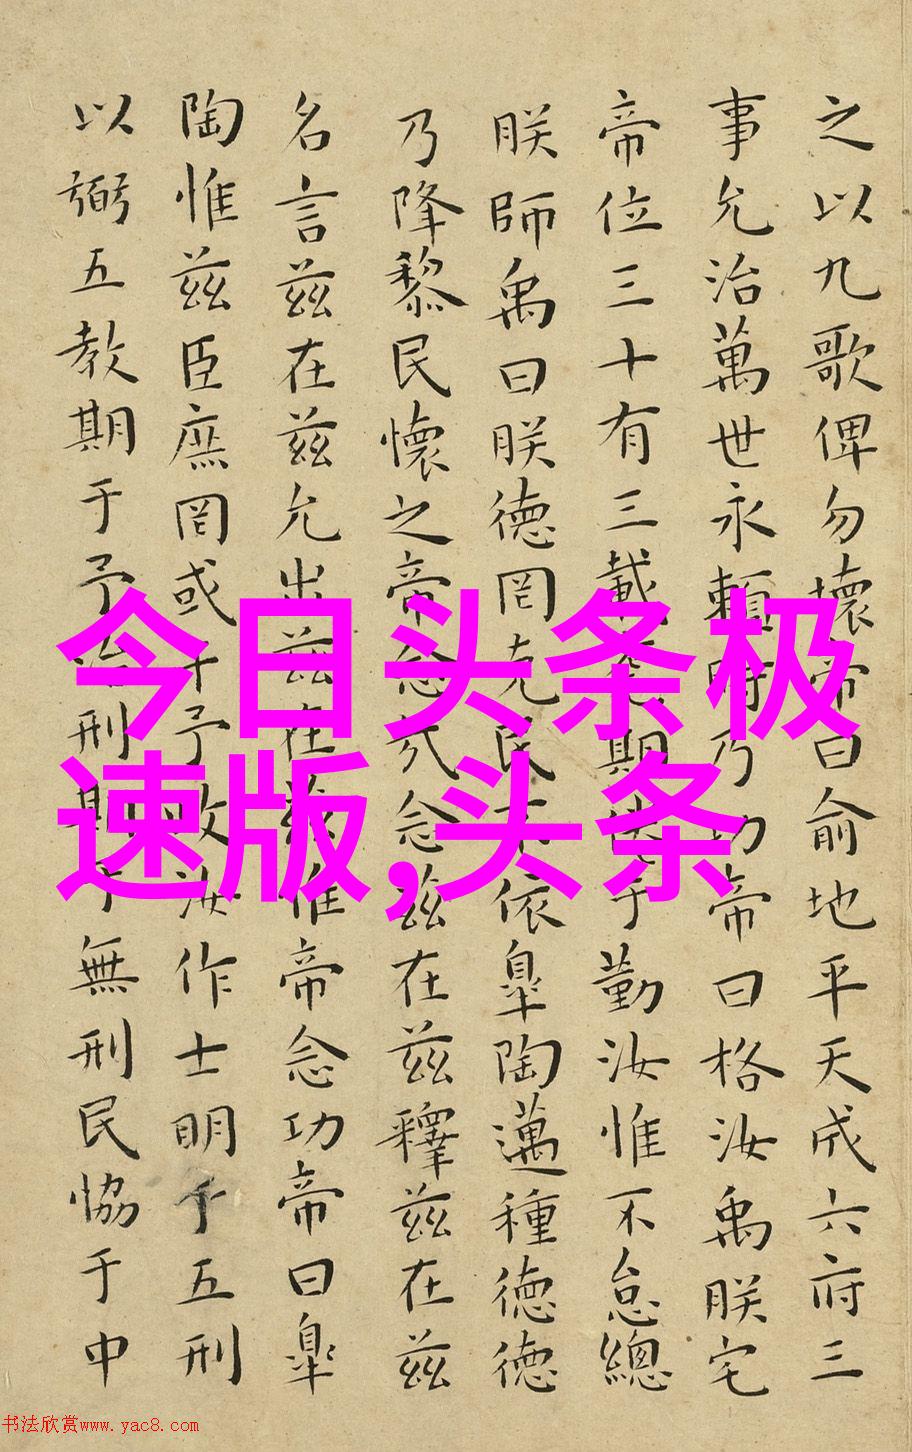 之以九歌俾勿壞帝曰俞地平天成六府三
事允治萬世永賴時乃功帝曰格汝禹朕宅
帝位三十有三載期于勤汝惟不怠總
朕師禹曰朕德罔克民不依皐陶邁種德德
乃降黎民懷之帝念哉念茲在茲釋茲在茲
名言茲在茲允出茲在茲惟帝念功帝曰皐
陶惟茲臣庶罔或干予政汝作士明于五刑
以弼五教期于予治刑期于無刑民協于中
今日头条极
速版,头条
书法欣赏www.yac8.com